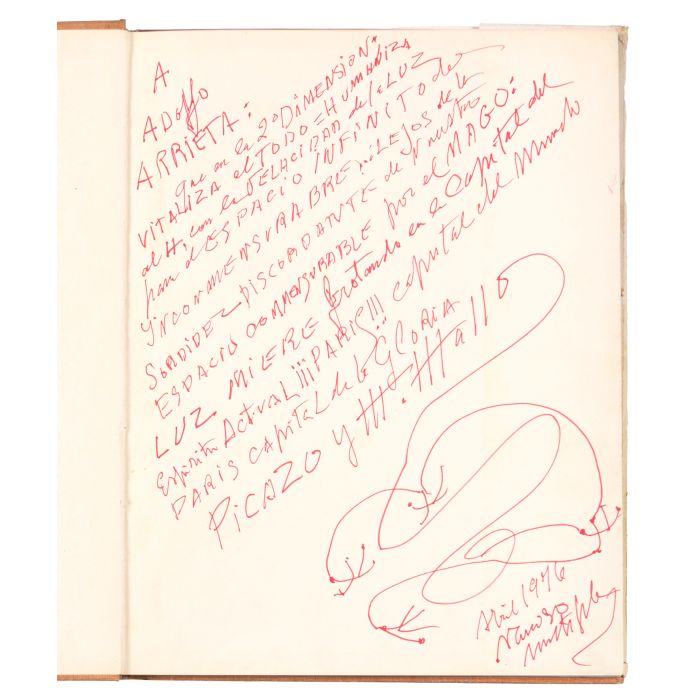 A
ADolfo
ARRIETA:
que en la 2ª DiMENSION
ViTALiZA el TODO = HUMANIZA
al H, con la VELOCIDAD de la LUZ
para el ESPACIO INFINITO de
YNCONMENSURABRE LEJOS de la
SORDIDEZ DISCORDANTE de Nuestro
ESPACIO CONMENSURABLE por el MAGO:
LUZ MIERE flotando en la Capital del
Espiritu ActuAL ¡¡¡PARIS!!! capital del Mundo
PARIS capital de la GLORIA
PiCAZO y
Abril 1976
Narciso
multiple